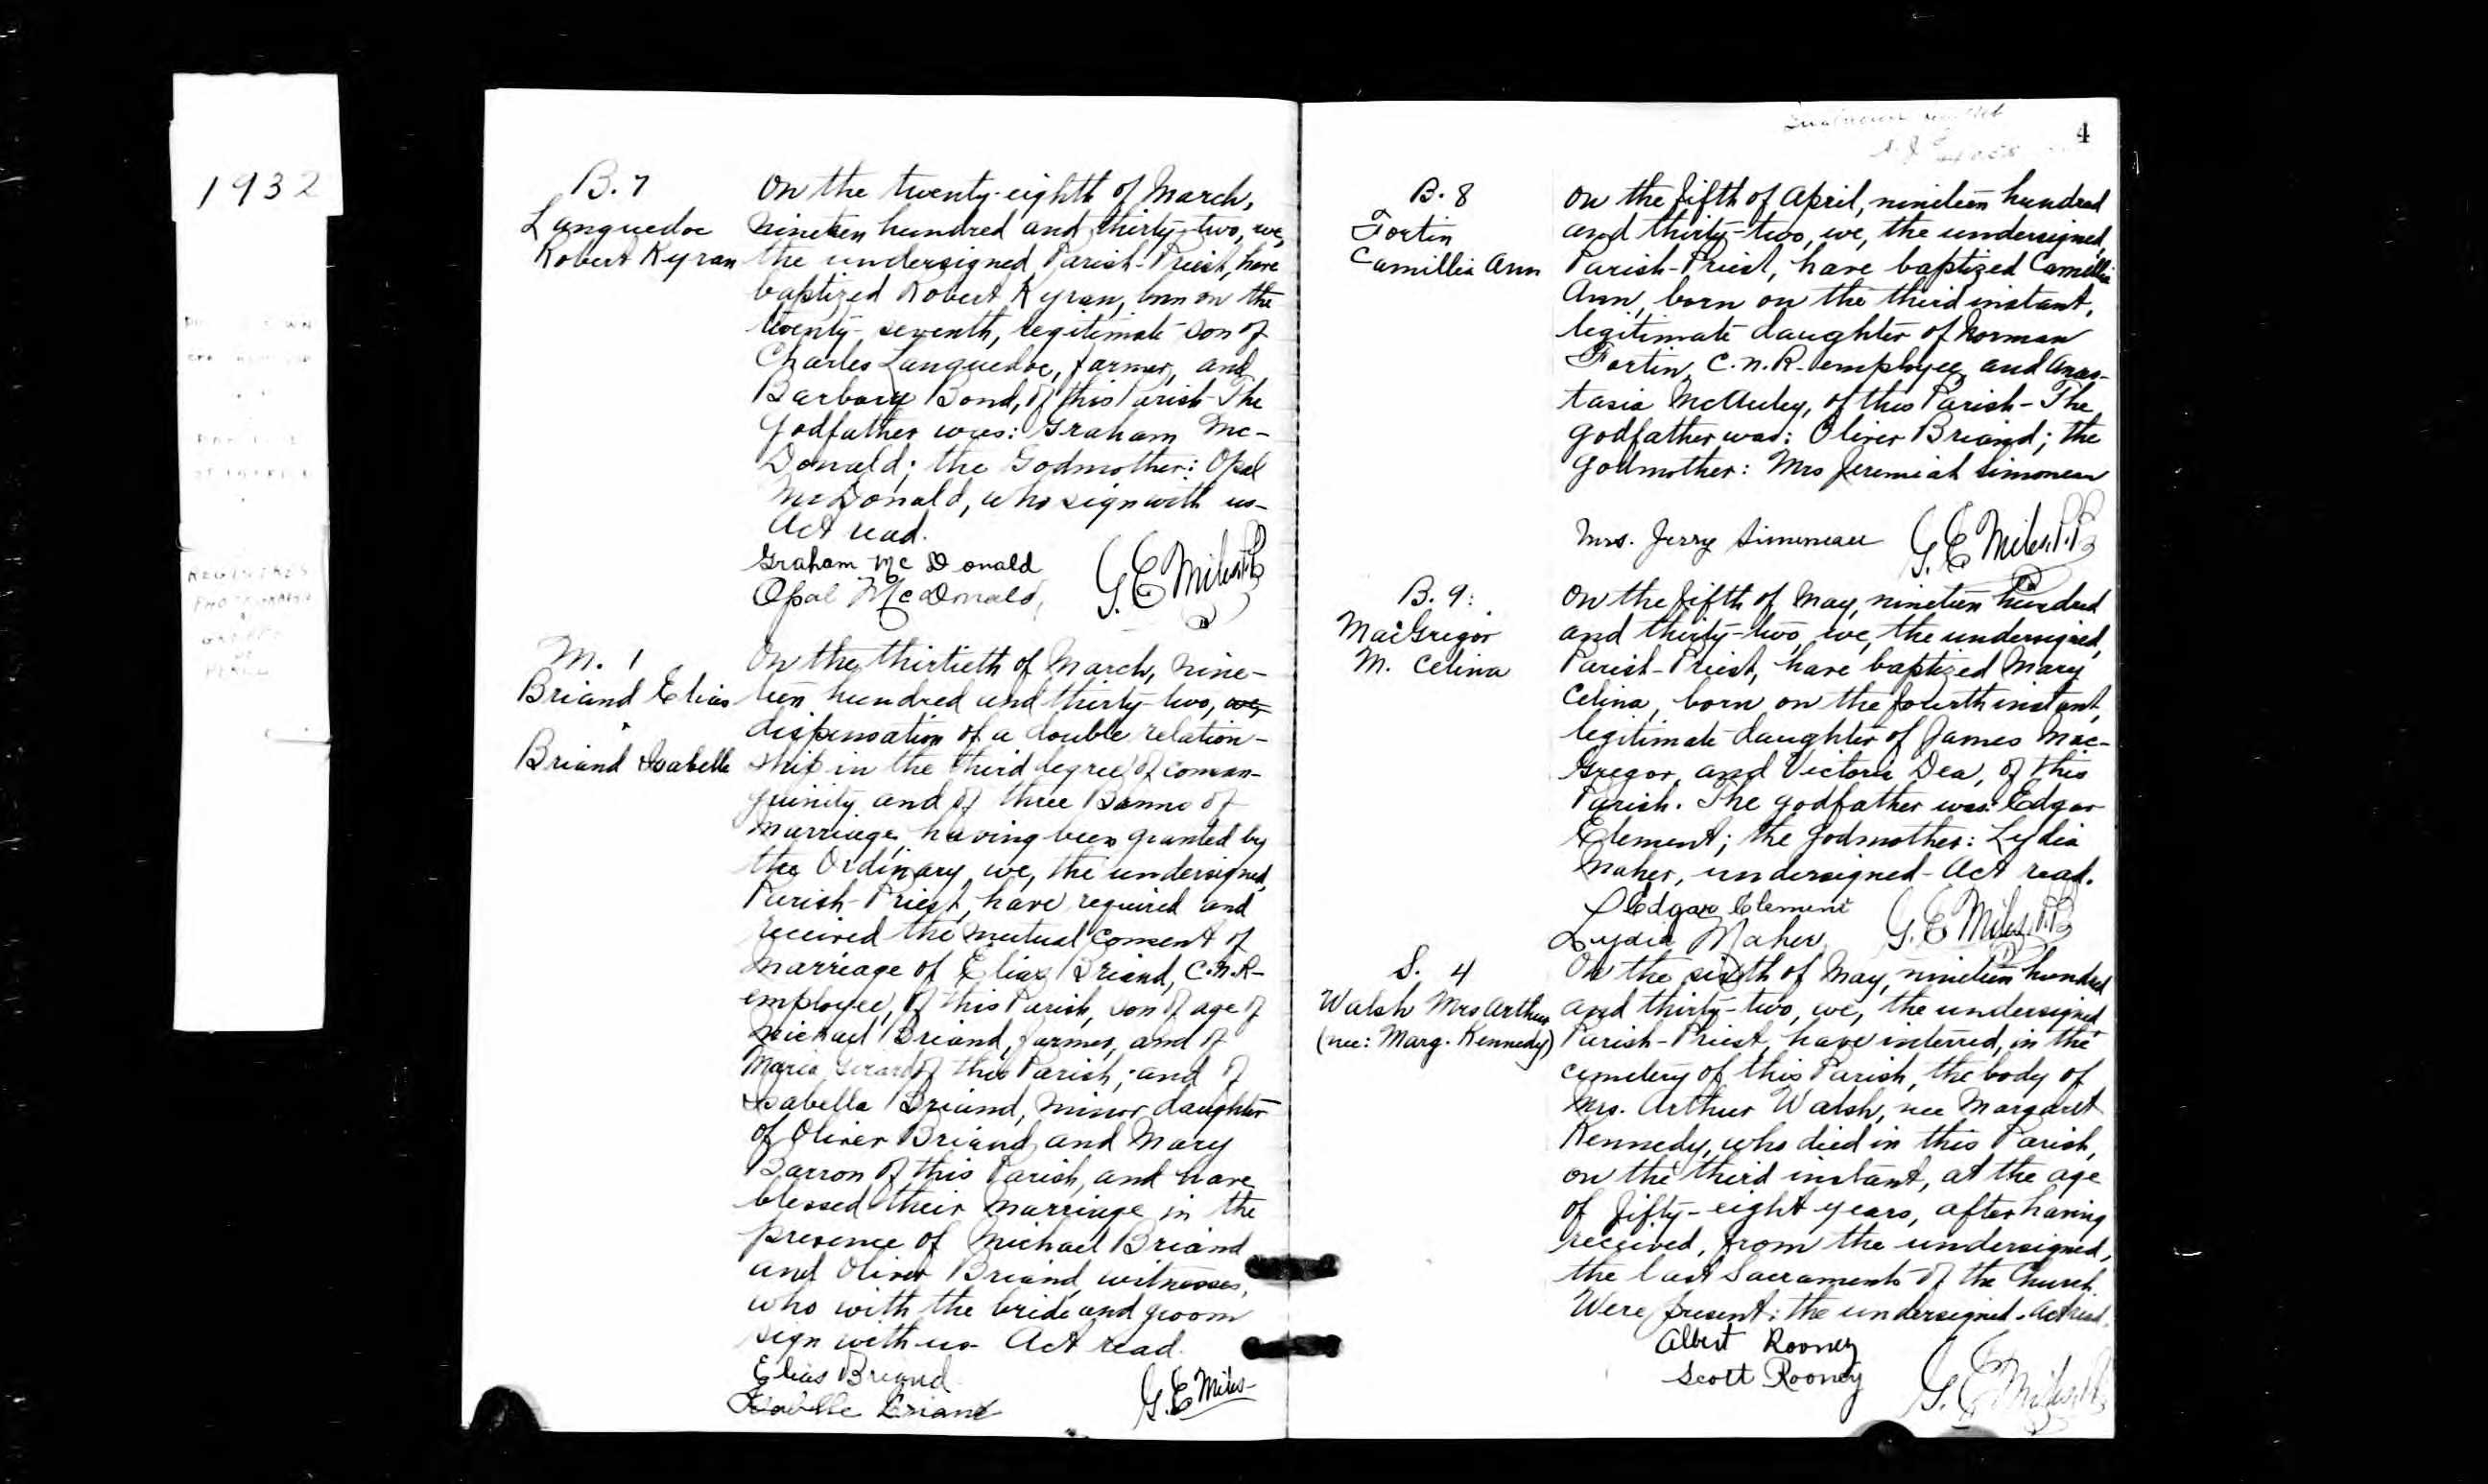 1932
REGISTRES
B. 7
Languedoc
Robert Kyran
On the twenty-eighth of March,
nineteen hundred and thirty-two, we,
the undersigned, Parish-Priest, have
baptized Robert Kyran, born on the
twenty-seventh, legitimate son of
Charles Languedoc, farmer, and
Barbary Bond, of this Parish. The
Godfather was: Graham Mc-
Donald; the Godmother: Opal
McDonald, who sign with us-
Act read.
Graham McDonald
Opal McDonald,
G. E. Miles, P.P.
M. 1
Briand Elias
&
Briand Isabelle
On the thirtieth of March, nine-
teen hundred and thirty-two, we,
dispensation of a double relation-
ship in the third degree of consan-
guinity and of three Banns of
Marriage, having been granted by
the Ordinary, we, the undersigned,
Parish-Priest, have required and
received the mutual consent of
marriage of Elias Briand, C.N.R-
employee, of this Parish, son of age of
Michael Briand, farmer, and of
Maria Girard of this Parish; and of
Isabella Briand, minor daughter
of Oliver Briand and Mary
Barron of this Parish, and have
blessed their marriage in the
presence of Michael Briand
and Oliver Briand, witnesses,
who with the bride and groom
sign with us- Act read.
Elias Briand
Isabelle Briand
G. E. Miles-
4
B. 8
Fortin
Camillia Ann
On the fifth of April, nineteen hundred
and thirty-two, we, the undersigned,
Parish-Priest, have baptized Camellia
Ann, born on the third instant,
legitimate daughter of Norman
Fortin, C.N.R. employee, and Anas-
tasia McAuley, of this Parish- The
godfather was: Oliver Briand; the
godmother: Mrs Jeremiah Simoneau
Mrs. Jerry Simoneau
G. E. Miles, P.P.
B. 9:
MacGregor
M. Celina
On the fifth of May, nineteen hundred
and thirty-two, we, the undersigned,
Parish-Priest, have baptized Mary
Celina, born on the fourth instant,
legitimate daughter of James Mac-
Gregor, and Victoria Dea, of this
Parish. The godfather was: Edgar
Element; the Godmother: Lydia
Maher, undersigned- Act read.
Edgar Element
Lydia Maher
G. E. Miles, P.P.
S. 4
Walsh Mrs Arthur
(nee: Marg. Kennedy)
On the sixth of May, nineteen hundred
and thirty-two, we, the undersigned
Parish-Priest, have interred, in the
cemetery of this Parish, the body of
Mrs. Arthur Walsh, nee Margaret
Kennedy, who died in this Parish,
on the third instant, at the age
of fifty-eight years, after having
received, from the undersigned,
the last Sacraments of the Church.
Were present: the undersigned. Act read.
Albert Rooney
Scott Rooney
G. E. Miles, P.P.